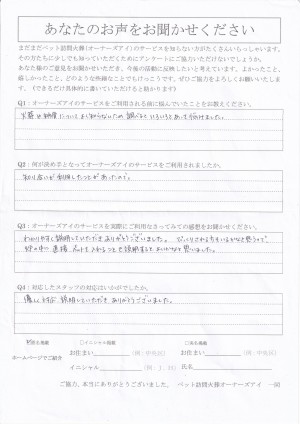 あなたのお声をお聞かせください
まだまだペット訪問火葬(オーナーズアイ)のサービスを知らない方がたくさんいらっしゃいます。
その方たちに少しでも知っていただくためにアンケートにご協力いただけないでしょうか。
あなた様のご意見をお聞かせいただき、今後の活動に反映したいと考えています。よかったこと、
嬉しかったこと、どのような些細なことでもけっこうです。ぜひご協力をよろしくお願いいたしま
す。(できるだけ具体的に書いていただけると助かります)
Q1:オーナーズアイのサービスをご利用される前に悩んでいたことをお教えください。
火葬や納骨について、よく知らないため 調べるといろいろとあって
Q2:何が決め手となってオーナーズアイのサービスをご利用されましたか。
知り合いが利用したことがあったので。
Q3:オーナーズアイのサービスを実際にご利用なさってみての感想をお聞かせください。
わかりやすく説明していただきありがとうございました。
Q4:対応したスタッフの対応はいかがでしたか。
優しく対応、説明していただき ありがとうございました。
匿名掲載 □イニシャル掲載 □実名掲載
ホームページでご紹介
お住まい (例:中央区) お住まい (例:中央区)
イニシャル 氏名
ご協力、本当にありがとうございました。 ペット訪問火葬オーナーズアイ 一同